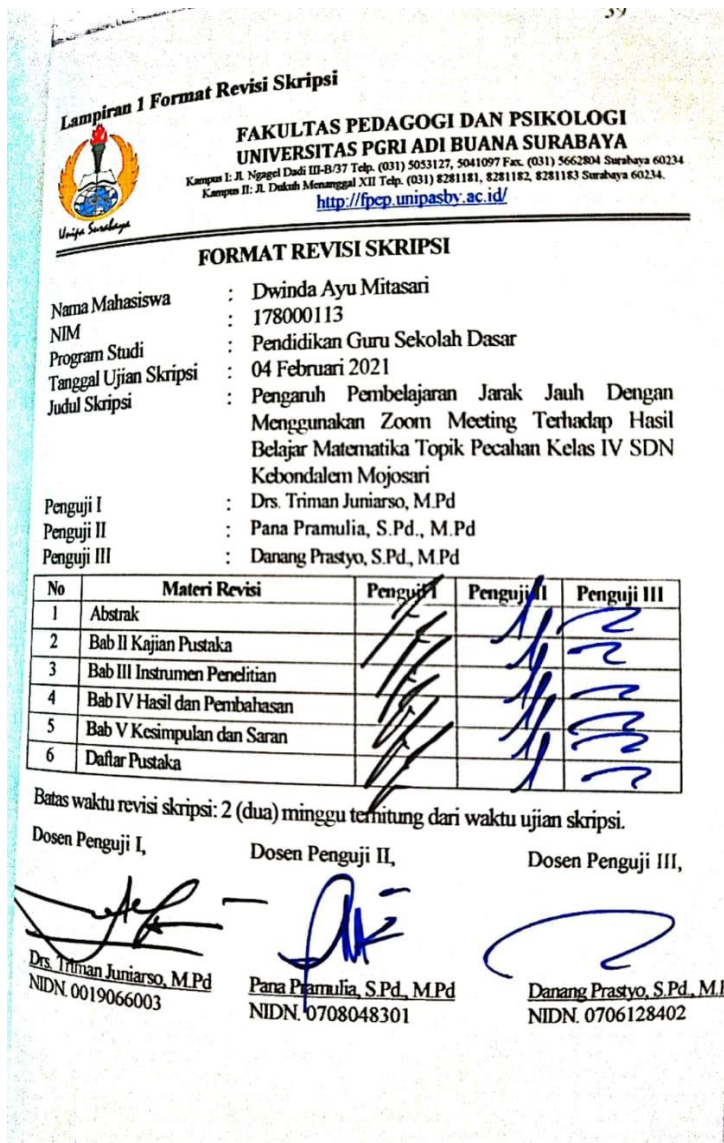 39
Lampiran 1 Format Revisi Skripsi
FAKULTAS PEDAGOGI DAN PSIKOLOGI
UNIVERSITAS PGRI ADI BUANA SURABAYA
Kampus I: Jl. Ngagel Dadi III-B/37 Telp. (031) 5053127, 5041097 Fax. (031) 5662804 Surabaya 60234
Kampus II: Jl. Dukuh Menanggal XII Telp. (031) 8281181, 8281182, 8281183 Surabaya 60234.
http://fpcp.unipasby.ac.id/
Unipa Surabaya
FORMAT REVISI SKRIPSI
Nama Mahasiswa : Dwinda Ayu Mitasari
NIM : 178000113
Program Studi : Pendidikan Guru Sekolah Dasar
Tanggal Ujian Skripsi : 04 Februari 2021
Judul Skripsi : Pengaruh Pembelajaran Jarak Jauh Dengan
Menggunakan Zoom Meeting Terhadap Hasil
Belajar Matematika Topik Pecahan Kelas IV SDN
Kebondalem Mojosari
Penguji I : Drs. Triman Juniarso, M.Pd
Penguji II : Pana Pramulia, S.Pd., M.Pd
Penguji III : Danang Prastyo, S.Pd., M.Pd
No Materi Revisi Penguji I Penguji II Penguji III
1 Abstrak
2 Bab II Kajian Pustaka
3 Bab III Instrumen Penelitian
4 Bab IV Hasil dan Pembahasan
5 Bab V Kesimpulan dan Saran
6 Daftar Pustaka
Batas waktu revisi skripsi: 2 (dua) minggu terhitung dari waktu ujian skripsi.
Dosen Penguji I, Dosen Penguji II, Dosen Penguji III,
Drs. Triman Juniarso, M.Pd Pana Pramulia, S.Pd., M.Pd Danang Prastyo, S.Pd., M.P
NIDN. 0019066003 NIDN. 0708048301 NIDN. 0706128402